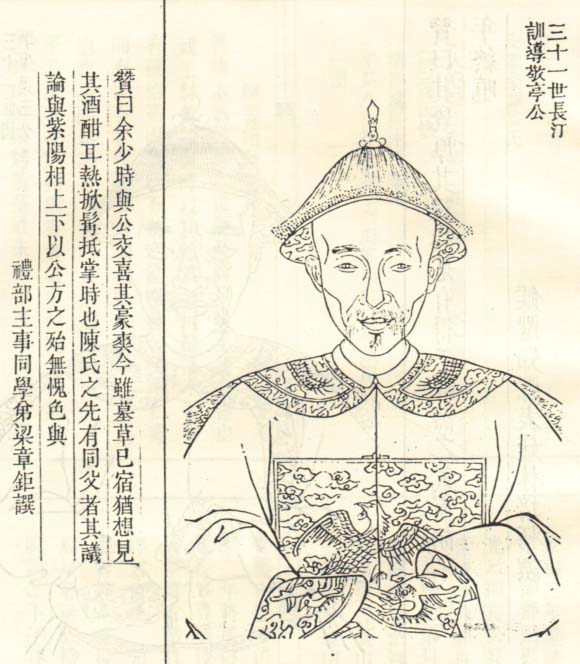 三十一世長汀
訓導敬亭公
贊曰余少時與公交喜其豪爽今雖墓草已宿猶想見
其酒酣耳熱掀髯抵掌時也陳氏之先有同父者其議
論與紫陽相上下以公方之殆無愧色與
禮部主事同學弟梁章鉅譔